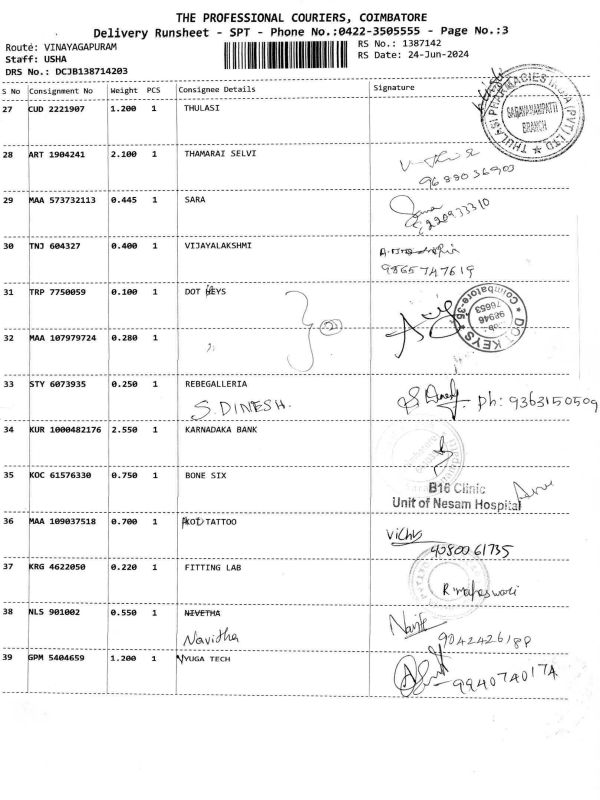 THE PROFESSIONAL COURIERS, COIMBATORE
Delivery Runsheet - SPT - Phone No.:0422-3505555 - Page No.:3
Route: VINAYAGAPURAM
Staff: USHA
DRS No.: DCJB138714203
RS No.: 1387142
RS Date: 24-Jun-2024
S No Consignment No Weight PCS Consignee Details Signature
THULASI PHARMACIES INDIA (PVT) LTD ★
SARAVANAMPATTI
BRANCH
27 CUD 2221907 1.200 1 THULASI
28 ART 1904241 2.100 1 THAMARAI SELVI
9688036900
29 MAA 573732113 0.445 1 SARA
30 TNJ 604327 0.400 1 VIJAYALAKSHMI
9865747619
31 TRP 7750059 0.100 1 DOT KEYS
★ DOT KEYS ★ Coimbatore-35
98946
76653
32 MAA 107979724 0.280 1 〃 2
33 STY 6073935 0.250 1 REBEGALLERIA
S. DINESH.
S. Dinesh Ph: 9363150509
34 KUR 1000482176 2.550 1 KARNADAKA BANK
35 KOC 61576330 0.750 1 BONE SIX
B16 Clinic
Unit of Nesam Hospital
36 MAA 109037518 0.700 1 KOT TATTOO
Vichu
9080061735
37 KRG 4622050 0.220 1 FITTING LAB
R maheswari
38 NLS 901002 0.550 1 NIVETHA
Navitha
9042426188
39 GPM 5404659 1.200 1 VYUGA TECH
9940740174